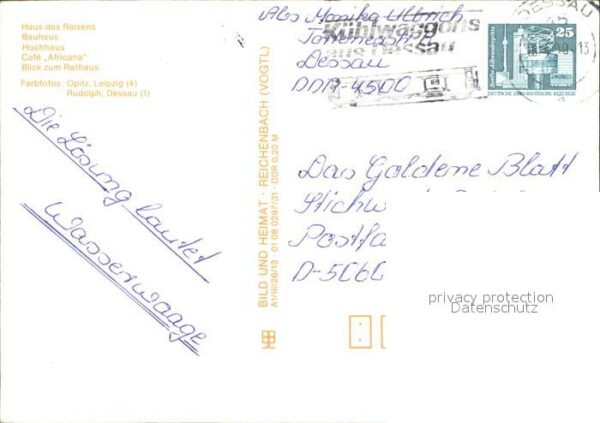 Haus des Reisens
Bauhaus
Hochhaus
Café „Africana“
Blick zum Rathaus
Farbfotos: Opitz, Leipzig (4)
Rudolph, Dessau (1)
Die Lösung lautet
Wasserwaage
BILD UND HEIMAT · REICHENBACH (VOGTL)
A1/III/26/13 · 01 08 0297/31 · DDR 0,20 M
Abs Monika Ulbrich
Dessau
DDR-4500
Kühlwaggons
aus Dessau
DESSAU
45
25
DEUTSCHE DEMOKRATISCHE REPUBLIK
Das Goldene Blatt
Stichw
Postfa
D-5060
privacy protection
Datenschutz